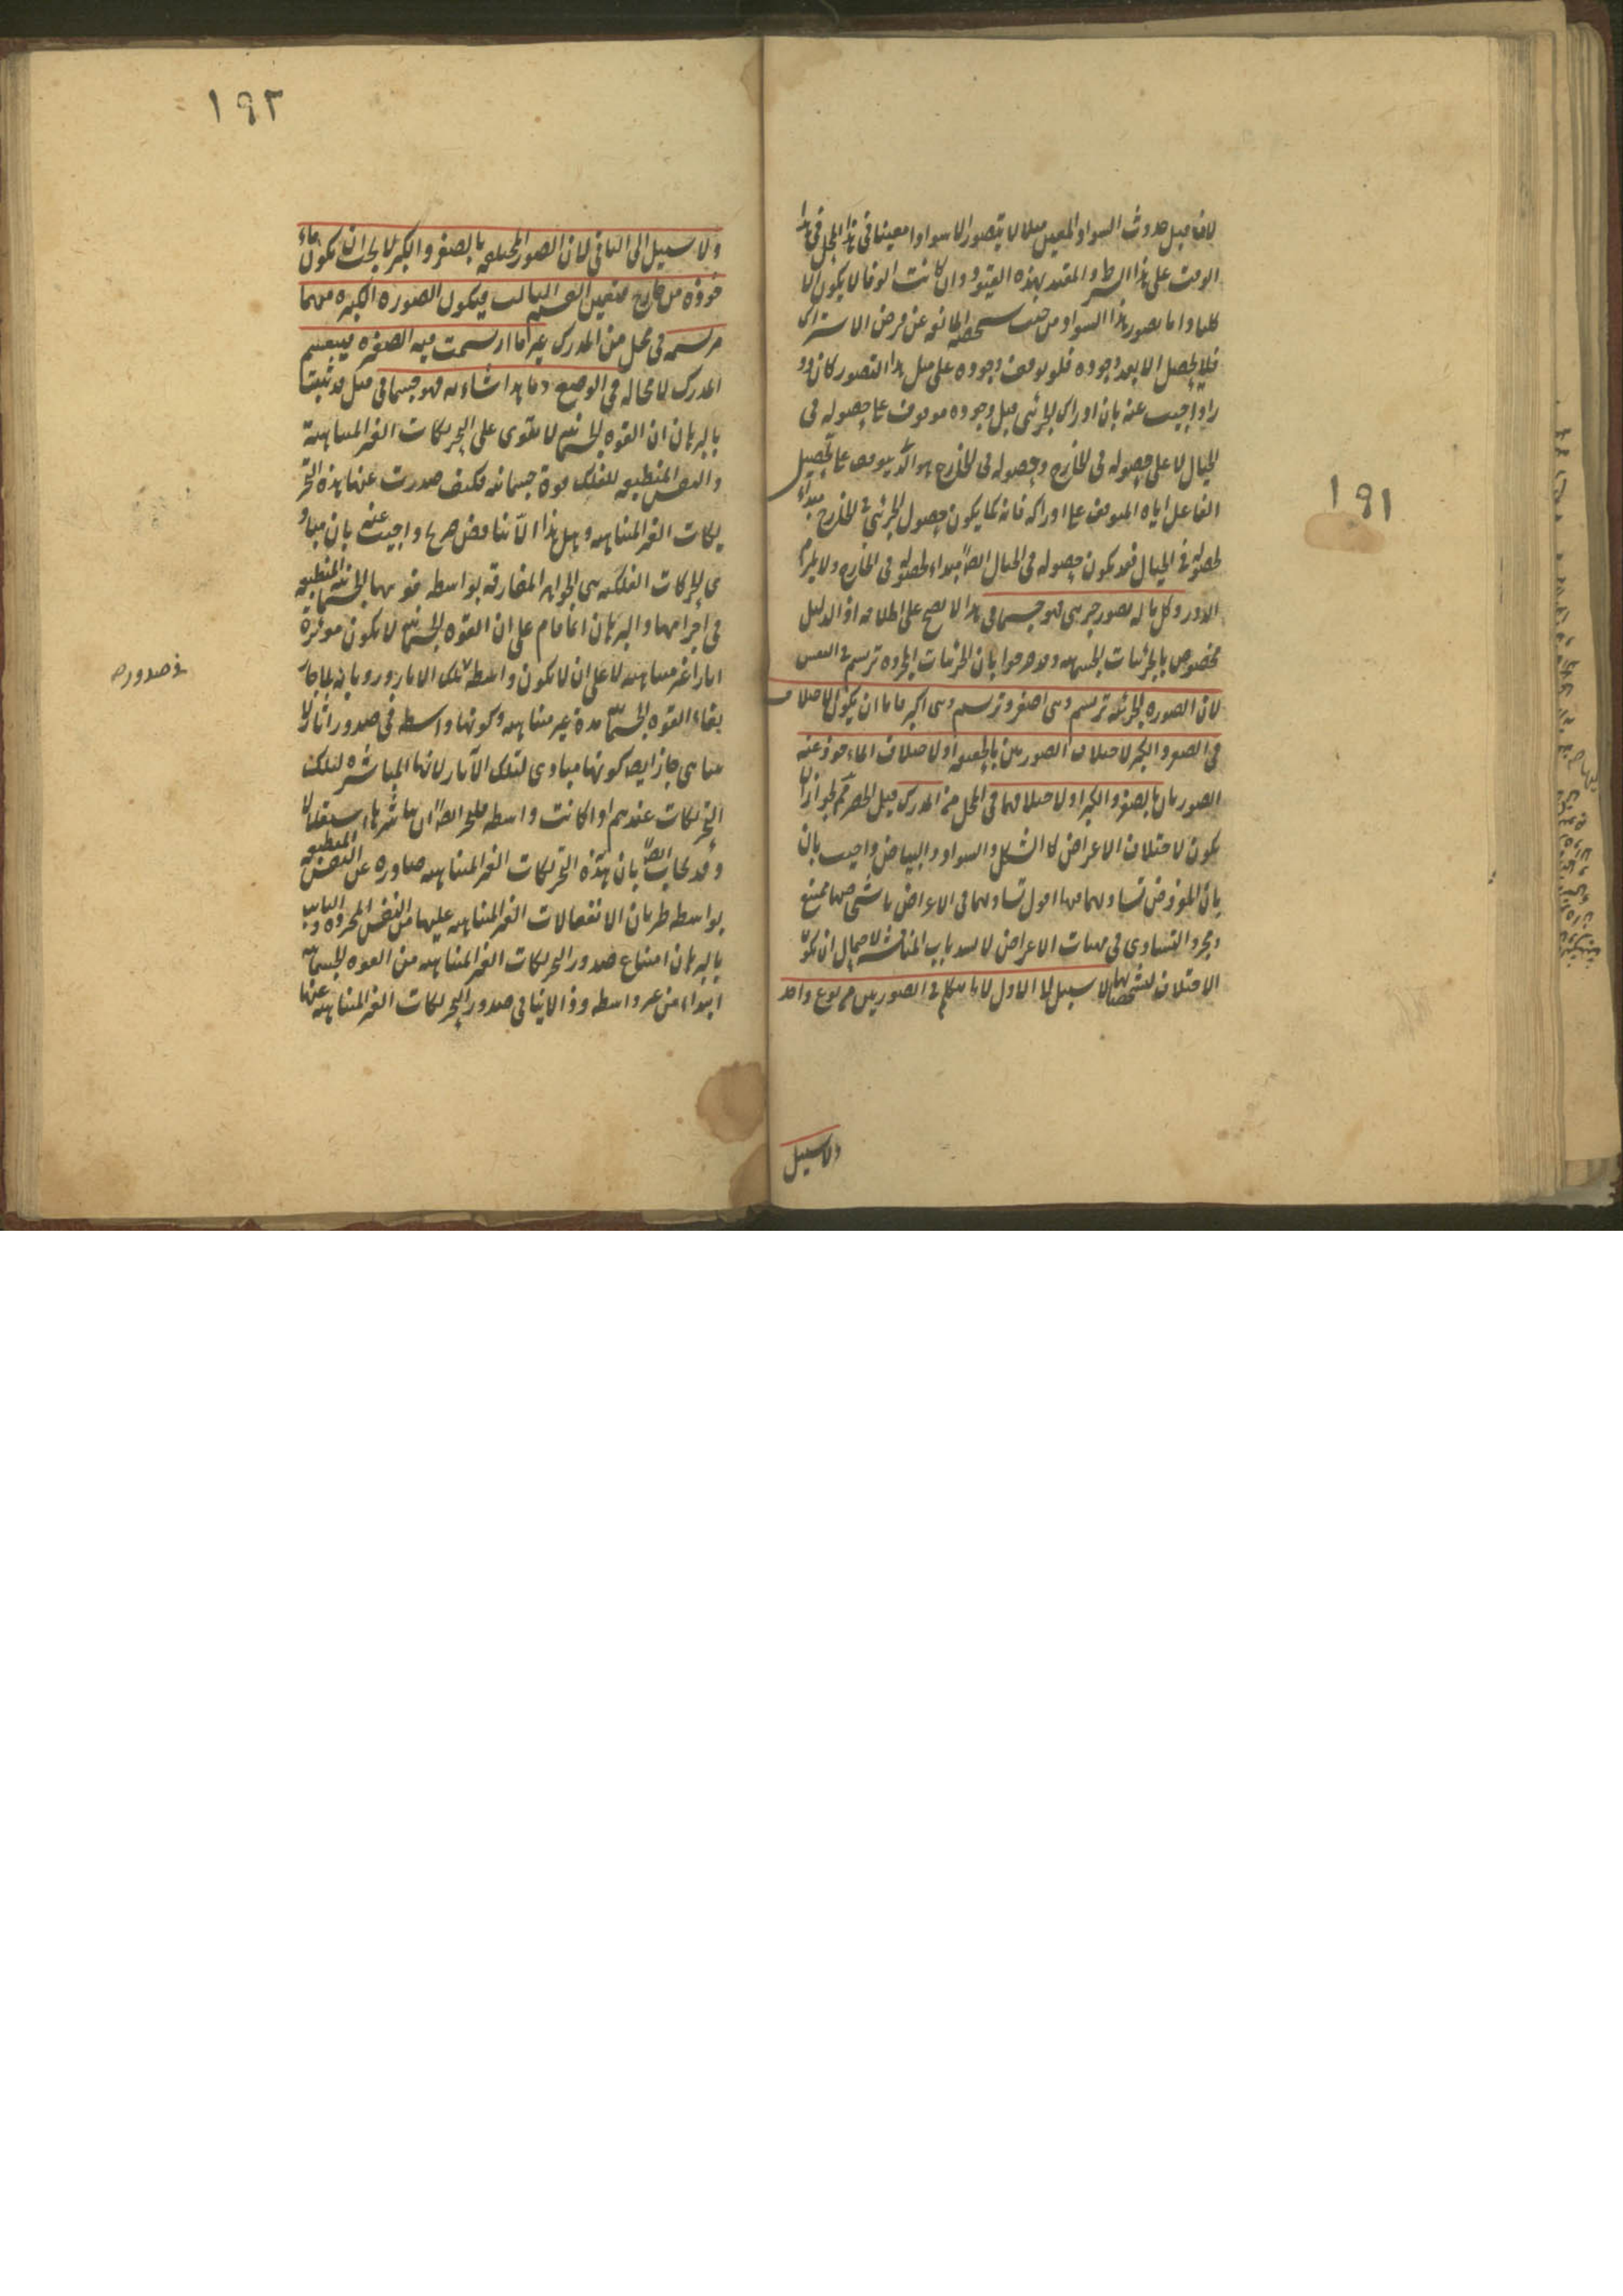 ١٩١
لان قبل حدوث السواد المعين مثلا لا يتصور الا سوادا معينا فى هذا المحل فى هذا
الوقت على هذا الشرط والمقيد بهذه القيود وان كانت الوفا لا يكون الا
كليا واما تصور هذا السواد من حيث شخصيته المانعة عن فرض الاشتراك
فلا يحصل الا بعد وجوده فلو توقف وجوده على مثل هذا التصور كان دو
را واجيب عنه بان ادراك الجزئى قبل وجوده موقوف على حصوله فى
الخيال لا على حصوله فى الخارج وحصوله فى الخارج هو الذى يتوقف على تحصيل
الفاعل اياه المتوقف على ادراكه فانه كما يكون حصول الجزئى فى الخارج مبداء
لحصوله فى الخيال فقد يكون حصوله فى الخيال ايضا مبداء لحصوله فى الخارج ولا يلزم
الدور وكل ما له تصور جزئى فهو جسمانى هذا لا يصح على اطلاقه اذ الدليل
مخصوص بالجزئيات الجسمية وقد صرحوا بان الجزئيات المجردة ترتسم فى النفس
لان الصورة الجزئية ترتسم وهى اصغر وترتسم وهى اكبر فاما ان يكون الاختلاف
فى الصغر والكبر لاختلاف الصورتين بالحقيقة او لاختلاف الماخوذ عنه
الصورتان بالصغر والكبر او لاختلافهما فى المحل من المدرك قيل الحصر ثم لجواز ان
يكون لاختلاف الاعراض كالشكل والسواد والبياض واجيب بان
بان المفروض تساويهما فيها اقول تساويهما فى الاعراض باشخاصها ممتنع
ومجرد التساوى فى مهيات الاعراض لا يسد باب المناقشة لاحتمال ان يكون
الاختلاف لتشخصاتها لا سبيل الى الاول لانا نتكلم فى الصورتين من نوع واحد
ولا سبيل
١٩٢
ولا سبيل الى الثانى لان الصور المختلفة بالصغر والكبر لا يجب ان تكون ماء
خوذة من خارج فتعين القسم الثالث فيكون الصورة الكبيرة منهما
مرتسمة فى محل من المدرك غير ما ارتسمت فيه الصغيرة فينقسم
المدرك لا محالة فى الوضع وما هذا شاءنه فهو جسمانى قيل قد ثبت
بالبرهان ان القوة الجسمانية لا تقوى على التحريكات الغير المتناهية
والنفس المنطبعة للفلك قوة جسمانية فكيف صدرت عنها هذه التحر
يكات الغير المتناهية وهل هذا الا تناقض صريح واجيب عنه بان مباد
ى الحركات الفلكية هى الجواهر المفارقة بواسطة نفوسها الجسمانية المنطبعة
فى اجرامها والبرهان انما قام على ان القوة الجسمانية لا تكون موثرة
اثارا غير متناهية لا على ان لا تكون واسطة تلك الاثار ورد بانه لما جاز
بقاء القوة الجسمانية مدة غير متناهية وكونها واسطة فى صدور اثار لا
تتناهى جاز ايضا كونها مبادى لتلك الاثار لانها المباشرة لتلك
التحريكات عندهم اذا كانت واسطة فليجز ايضا ان يباشرها استقلالا
وقد يجاب ايضا بان هذه التحريكات الغير المتناهية صادرة عن النفس المنطبعة
بواسطة طريان الانفعالات الغير المتناهية عليها من النفس المجردة والثابت
بالبرهان امتناع صدور التحريكات الغير المتناهية من القوة الجسمانية
ابتداء من غير واسطة وذا لا ينافى صدور التحريكات الغير المتناهية عنها
فى صدوره